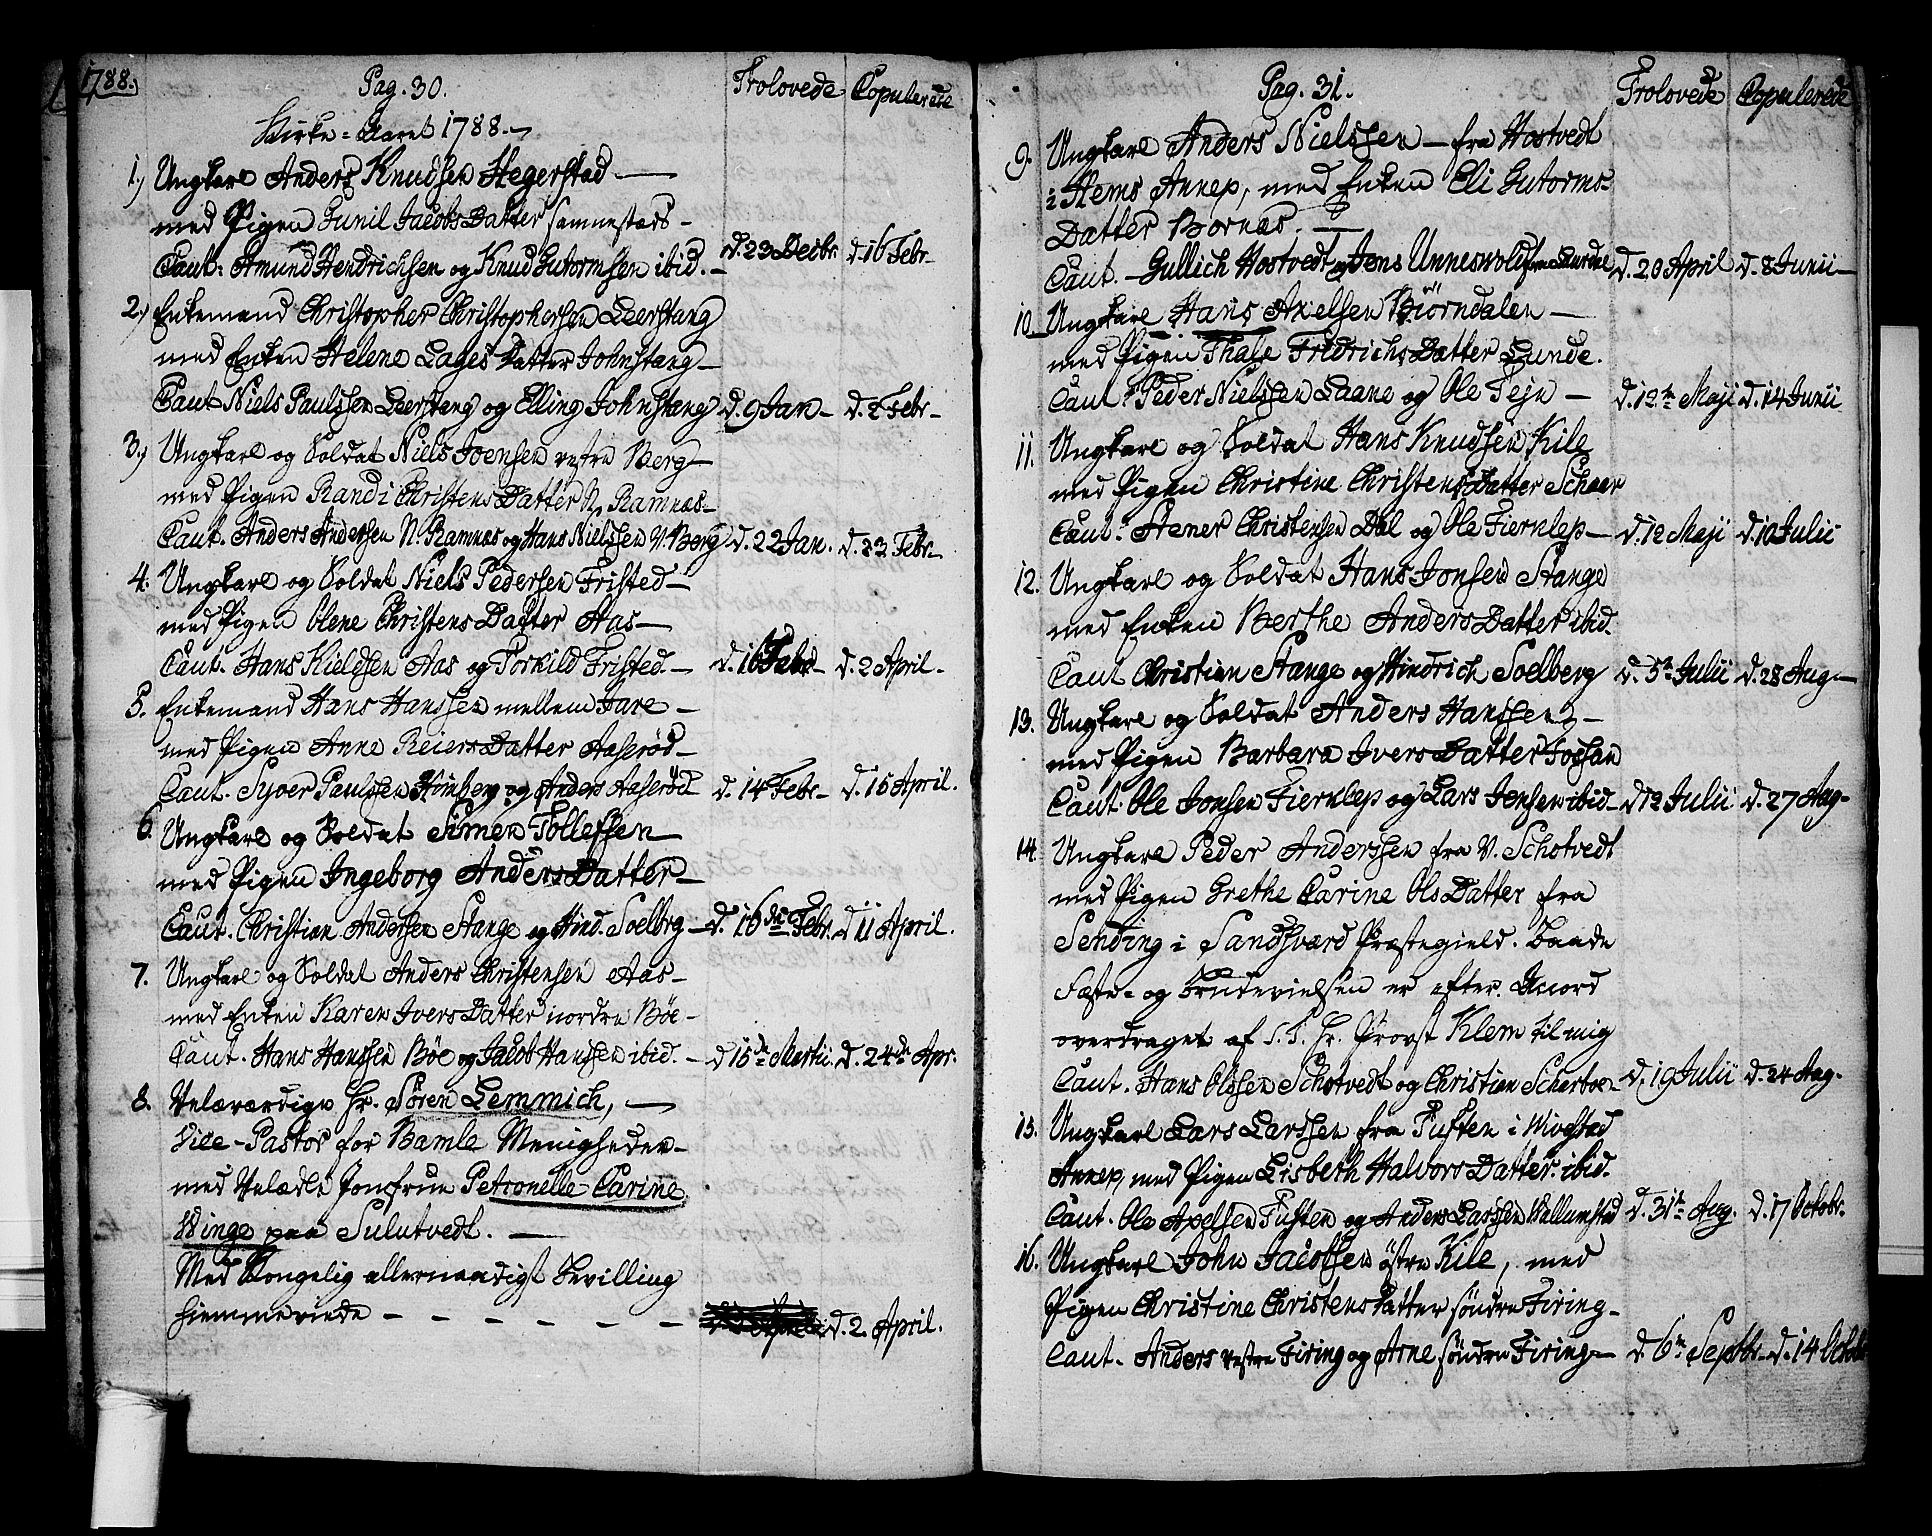 1788.
Pag. 30.
Trolovede
Copulerede
Kirke-Aaret 1788.
1.) Ungkarl Anders Knudsen Hegerstad
med Pigen Gunil Jacobs Datter sammesteds
Caut: Amund Hendrichsen og Knud Gutormsen ibid. d. 23 Decbr. d. 16 Febr.
2.) Enkemand Christopher Christophersen Leerstang
med Enken Helene Lages Datter Johnstang
Caut Niels Paulssen Leerstang og Elling Johnstang d. 9 Jan d. 2 Febr.
3.) Ungkarl og Soldat Niels Joensen vestre Berg
med Pigen Randi Christens Datter N. Ramnæs
Caut. Anders Anderssen N. Ramnæs og Hans Nielssen V. Berg d. 22 Jan. d. 23 Febr.
4. Ungkarl og Soldat Niels Pedersen Fristed
med Pigen Olene Christens Datter Aas
Caut. Hans Kieldsen Aas og Torkild Fristed. d. 16 Febr d. 2 April.
5. Enkemand Hans Hanssen mellem Fare
med Pigen Anne Reiers Datter Aaserød
Caut. Syver Paulssen Himberg og Anders Aaserød d. 14 Febr d. 15 April.
6. Ungkarl og Soldat Simen Tollefsen
med Pigen Ingeborg Anders Datter
Caut. Christian Andersen Stange og Hind. Soelbrg d. 16de Febr. d 11 April.
7. Ungkarl og Soldat Anders Christensen Aas
med Enken Karen Ivers Datter nordre Bøe
Caut. Hans Hanssen Bøe og Jacob Hanssen ibid. d 15de Martii. d. 24de Apr.
8. Velærværdige Hr. Søren Lemmich,
Vice-Pastor for Bamle Menigheder
med Velædle Jomfrue Petronelle Carine
Winge paa Sulutvedt.
Med Kongelig allernaadigst Bevilling
hiemmeviede d. 2. April.
Pag. 31.
Trolovede
Copulerede
9. Ungkarl Anders Nielssen fra Hostvedt
i Hems Annex, med Enken Eli Gutorms
Datter Bornæs.
Caut. Gullich Hostvedt og Jens Unneswold fra d. 20 April d. 8 Junii
10 Ungkarl Hans Axelsen Biörndalen
med Pigen Thale Fridrichs Datter Lunde.
Caut. Peder Nielssen Laane og Ole Tejn d. 12te Maji d. 14 Junii
11. Ungkarl og Soldat Hans Knudssen Kile
med Pigen Christine Christens Datter Schaar
Caut. Stener Christensen Dal og Ole Fierklep d. 12 Maji d. 10 Julii
12. Ungkarl og Soldat Hans Jonsen Stange
med Enken Berthe Anders Datter ibid.
Caut Christian Stange og Hindrich Soelberg d. 5te Julii d. 28 Aug
13. Ungkarl og Soldat Anders Hanssen
med Pigen Barbara Ivers Datter Fossan
Caut. Ole Jonsen Fierklep og Lars Jonsen ibid d 12 Julii d. 27 Aug
14. Ungkarl Peder Anderssen fra V. Schotvedt
med Pigen Grethe Carine Ols Datter fra
Sending i Sandsværd Præstegield. Baade
Fæste- og Brudevielsen er efter Accord
overdraget af S. T. Hr. Provst Klem til mig
Caut. Hans Olssen Schotvedt og Christian Scherboe d. 19 Julii d. 24 Aug.
15. Ungkarl Lars Larssen fra Tuften i
Annex, med Pigen Lisbeth Halvors Datter. ibid.
Caut. Ole Axelssen Tuften og Anders Larssen Wallumstad d. 31te Aug. d. 17 Octobr.
16. Ungkarl John Jacobsen östre Kile, med
Pigen Christine Christens Datter söndre Firing
Caut. Anders vestre Firing og Arne söndre Firing d. 6te Septbr d. 14 Octobr